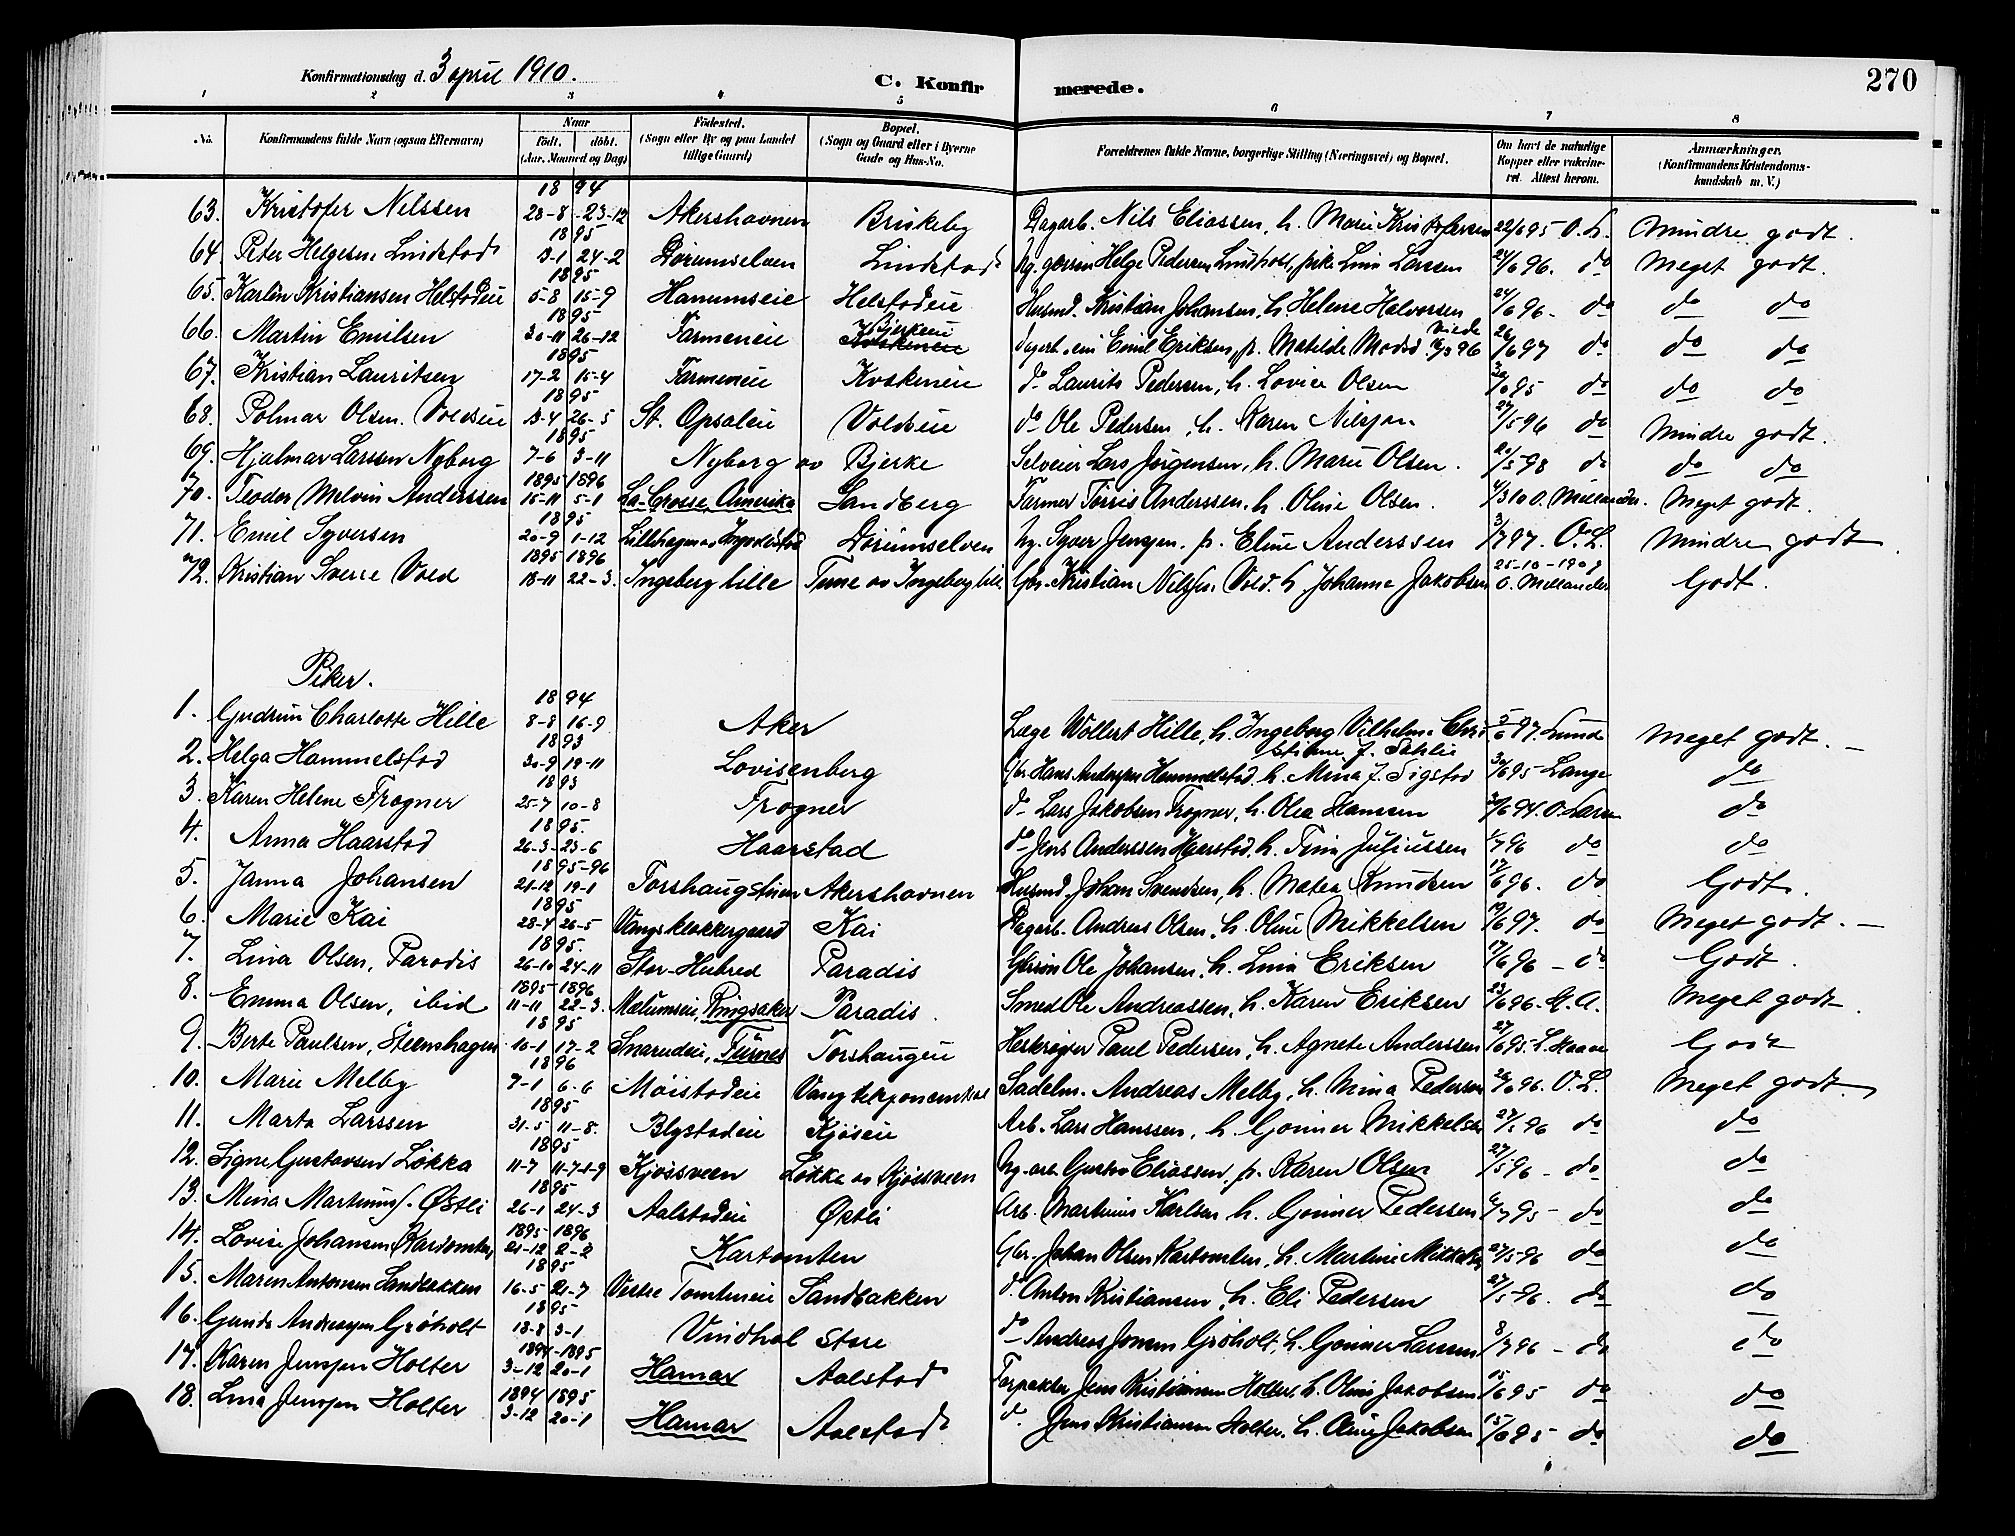 Konfirmationsdag d. 3 april 1910. C. Konfirmerede. 270
1 2 3 4 5 6 7 8
No. Konfirmandens fulde Navn (ogsaa Efternavn) Naar Födt. döbt. (Aar, Maaned og Dag) Födested. (Sogn eller By og paa Landet tillige Gaard) Bopæl. (Sogn og Gaard eller i Byerne Gade og Hus-No. Forældrenes fulde Navne, borgerlige Stilling (Næringsvei) og Bopæl. Om havt de naturlige Kopper eller vakcineret. Attest herom. Anmærkninger. (Konfirmandens Kristendomskundskab m. V.)
1894
63. Kristofer Nilssen 28-8 23-12 Akershavnen Briskeby Dagarb. Nils Eliassen, h. Marie Kristofersen 22/6 95 O. L. Mindre godt.
1895
64. Peter Helgesen Lindstad 13-1 24-2 Dørumselven Lindstad Helge Pedersen Lina Larssen 24/6 96. do Meget godt.
1895
65. Karlin Kristiansen Helstadeie 5-8 15-9 Hanumseie Helstadeie Husmd. Kristian Johansen, h. Helene Halvorsen 24/6 96 - do do do
1895
66. Martin Emilsen 30-11 26-12 Farmeneie Bjerkeeie Emil Eriksen, p. Matilde viede 96 26/6 97 do do do
1895
67. Kristian Lauritsen 17-2 15-4 Farmeneie Koskeneie do Laurits Pedersen, h. Lovise Olsen 95 do do do
1895
68. Polmar Olsen Voldseie 13-4 26-5 St. Opsaleie Voldseie do Ole Pedersen, h. Karen Nilssen 27/5 96 do Mindre godt.
1895
69. Hjalmar Larssen Nyborg 7-6 3-11 Nyborg av Bjerke Selveier Lars Jørgensen, h. Marie Olsen. 20/5 98 do do do
1895 1896
70. Teodor Melvin Anderssen 15-11 5-1 La-Crosse, Amerika Sandberg Farmer Torris Anderssen, h. Oline Olsen. 4/3 10 O. Mellander. Meget godt.
1895
71. Emil Syversen 20-9 1-12 Dørumselven Ug. Syver Jenssen, p. Eline Anderssen 3/7 97. O. L. Mindre godt
1895 1896 25-10-1909
72. Kristian Sverre Vold 18-11 22-3. Ingeberg lille Tune av Ingeberg lille Gbr. Kristian Nilssen Vold. h. Johanne Jakobsen O. Mellander Godt.
Piker.
1894
1. Gudrun Charlotte Hille 8-8 16-9 Aker Læge Wollert Hille, h. Ingeborg Vilhelmine Chri- 5/6 97. Lunde Meget godt. -
1893 stiane f. Sahlie
2. Helga Hammelstad 30-9 19-11 Lovisenberg Gbr. Hans Andersen Hammelstad, h. Mina f. Sigstad 30/6 95 Lange do
1893
3. Karen Helene Frogner 25-7 10-8 Frogner do Lars Jakobsen Frogner, h. Olea Hanssen 94. O. Larsen do
1895.
4. Anna Haarstad 26-3 23-6 Haarstad do Jens Anderssen Haarstad, h. Tina Juliussen 1/7 96 do do
1895-96
5. Janna Johansen 21-12 19-1 Torshaugstuen Akershavnen Husmd. Johan Svendsen, h. Matea Knudsen 17/6 96. do Godt.
1895
6. Marie Kai 28-4 26-5 Vangs klokkergaard Kai Dagarb. Andreas Olsen, h. Oline Mikkelsen 19/6 97. do Meget godt. -
1895.
7. Lina Olsen, Paradis 26-10 24-11 Stor-Huhred Paradis Ole Johansen, h. Lina Eriksen 17/6 96 - do Godt.
1895-1896
8. Emma Olsen, ibid 11-11 22-3. Mælumseie, Ringsaker Paradis. Smed Ole Andreassen, h. Karen Eriksen 23/6 96. G. A. Meget godt.
1895
9. Berte Paulsen, Steenshagen 10-1 17-2 Snarudeie, Furnes Torshaugeie Paul Pedersen, h. Agnete Anderssen 27/6 95. L. Haave Godt
1896
10. Marie Melby 7-1 6-6 Möistadeie Sadelm. Andreas Melby, h. Mina Pedersen 96. O. L. Meget godt.
1895
11. Marta Larssen 31-5 11-8. Blystadeie Kjöseie Arb. Lars Hanssen, h. Gonner Mikkelsen 96 do do
1895
12. Signe Gustavsen Løkka 11-7 Kjøssveen Løkka av Kjøssveen Ug. arb. Gustav Eliassen, p. Karen Olsen 27/5 96 - do do
1895
13. Mina Martinius. Østli 26-1 24-3 Aalstadeie Østli Arb. Martinius Karlsen, h. Gonner Pedersen 95 - do do
1895-1896
14. Lovise Johansen Kartomten, 21-12 2-2 Kartomten Gbr. Johan Olsen Kartomten, h. Martine Mikkelsen 27/5 96 do do
1895
15. Maren Antonsen Sandbakken 16-5 21-7 Vestre Tomteneie Sandbakken do Anton Kristiansen, h. Eli Pedersen 27/5 96. do do
1895
16. Gunda Andreasen Gröholt 18-8 3-1 Vindhol Store do Andreas Jonsen Gröholt, h. Gonner Larssen 8/7 96 - do do
1894-1895
17. Karen Jenssen Holter 3-12 20-1 Hamar Aalstad Forpakter Jens Kristiansen Holter, h. Oline Jakobsen 15/6 95 do do
1894 1895
18. Lina Jenssen Holter 3-12 20-1 Hamar Aalstad do Jens Kristiansen Holter, h. Oline Jakobsen 15/6 95 do do